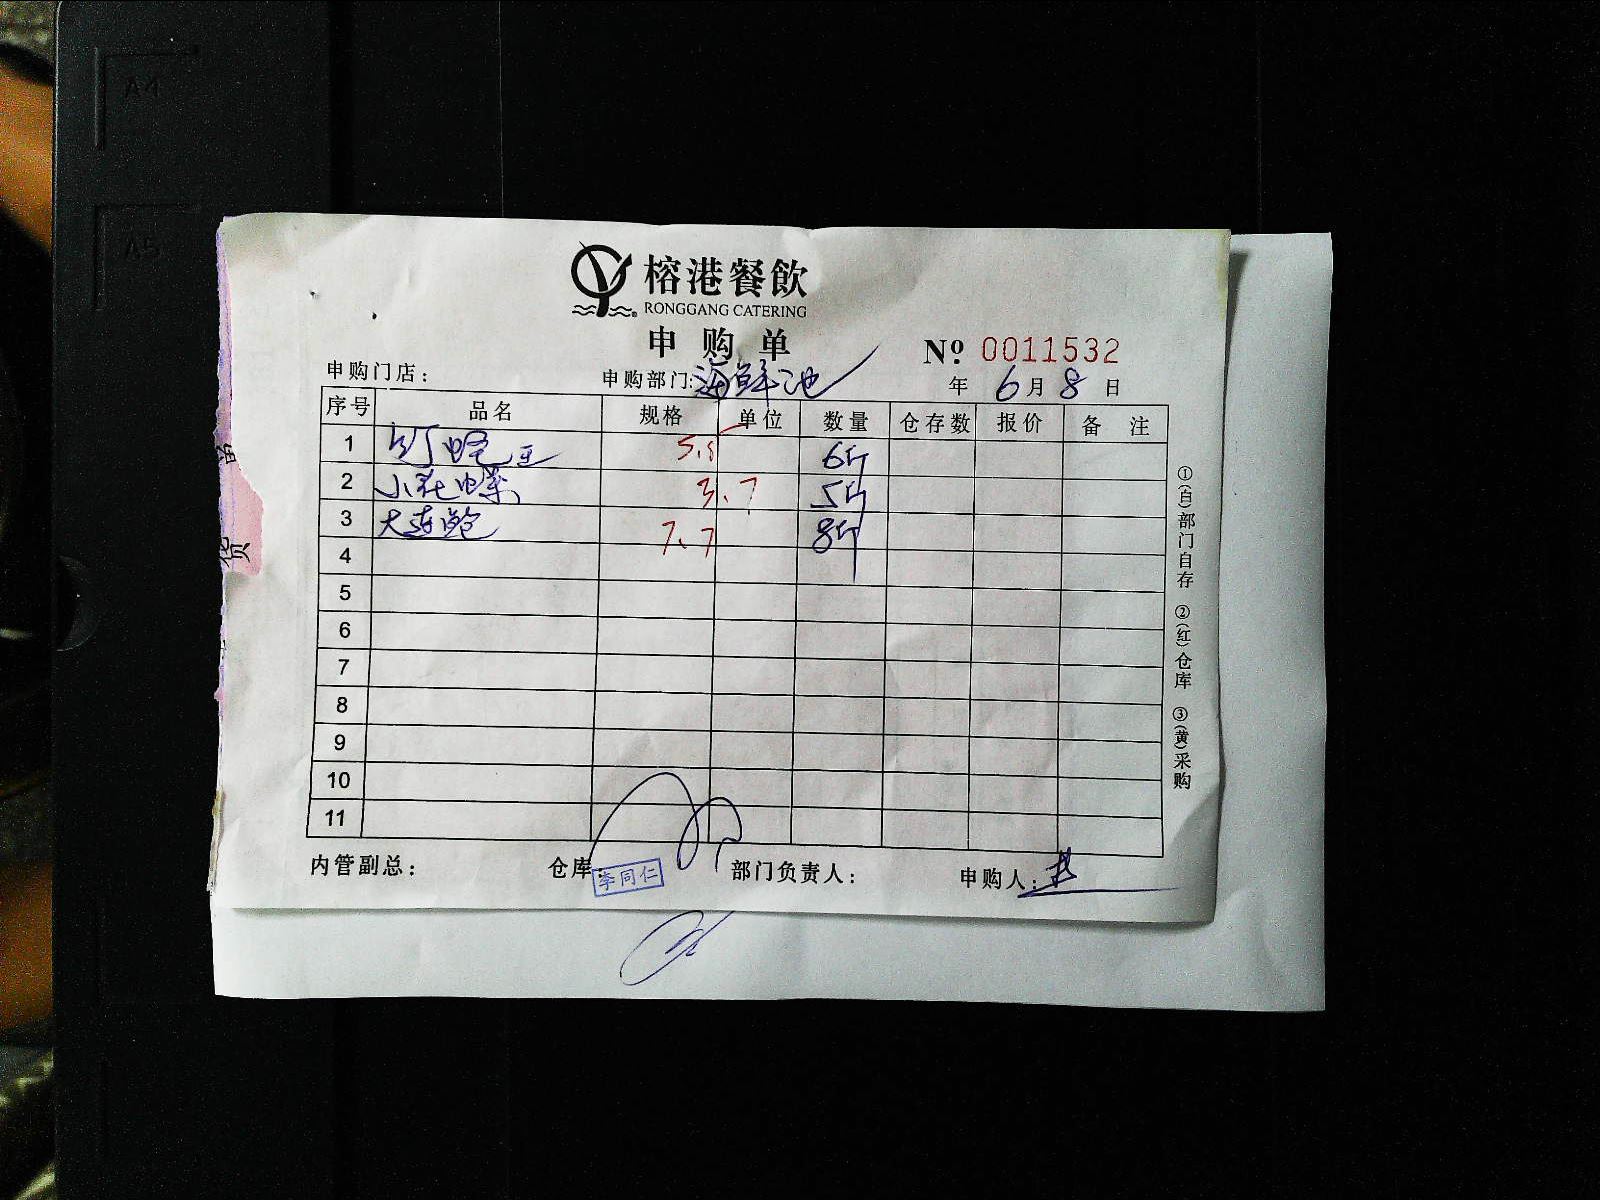 A4
A5
榕港餐飲
RONGGANG CATERING
申购单
Nº 0011532
申购门店：
申购部门:海鲜池
年 6月8日
序号 品名 规格 单位 数量 仓存数 报价 备注
1 5.5 6斤
2 小花螺 3.7 5斤
3 大连鲍 7.7 8斤
4
5
6
7
8
9
10
11
①(白)部门自存 ②(红)仓库 ③(黄)采购
内管副总： 仓库： 部门负责人： 申购人：
李同仁
货